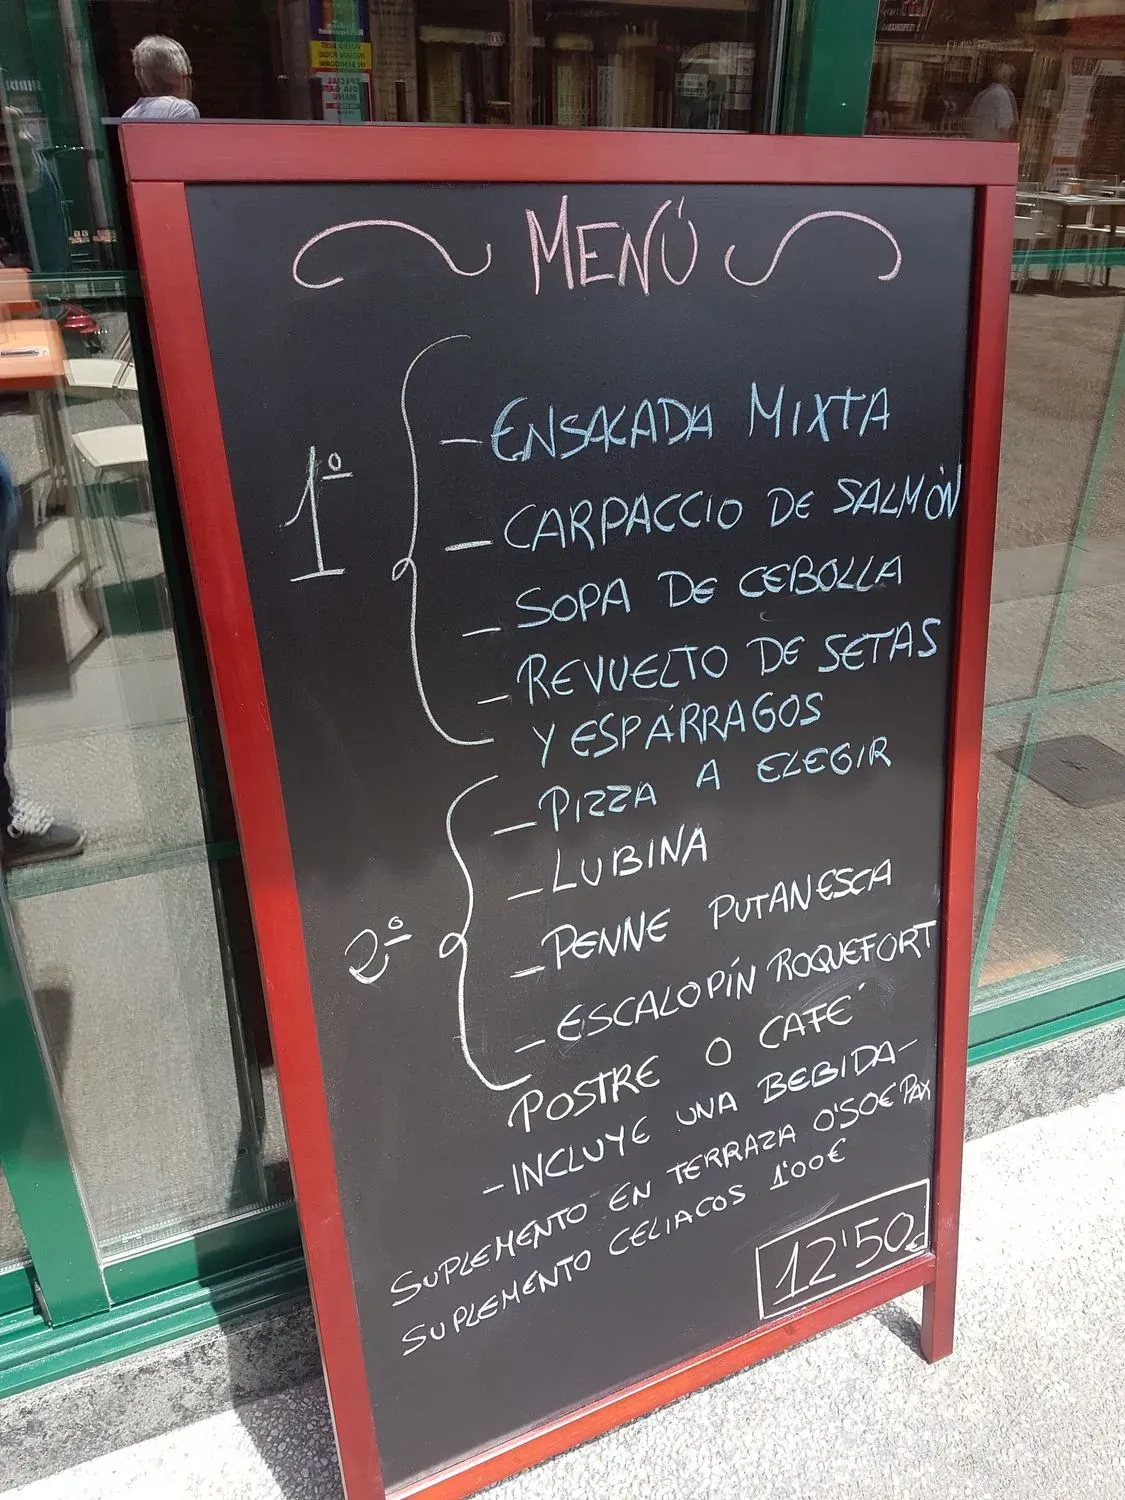 MENÚ
1º
- ENSALADA MIXTA
- CARPACCIO DE SALMÓN
- SOPA DE CEBOLLA
- REVUELTO DE SETAS
Y ESPÁRRAGOS
2º
- PIZZA A ELEGIR
- LUBINA
- PENNE PUTANESCA
- ESCALOPÍN ROQUEFORT
POSTRE O CAFÉ
- INCLUYE UNA BEBIDA -
SUPLEMENTO EN TERRAZA 0'50€ PAX
SUPLEMENTO CELIACOS 1'00€
12'50€